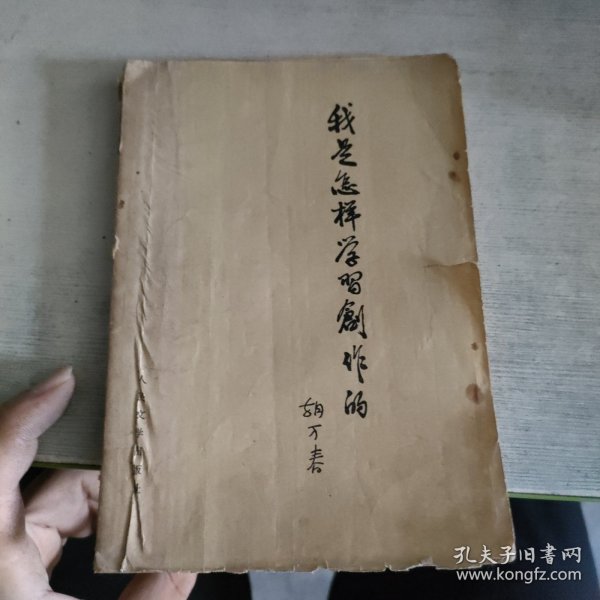 我是怎样学習創作的
胡万春
人民文学出版社
孔夫子旧书网
www.kongfz.com